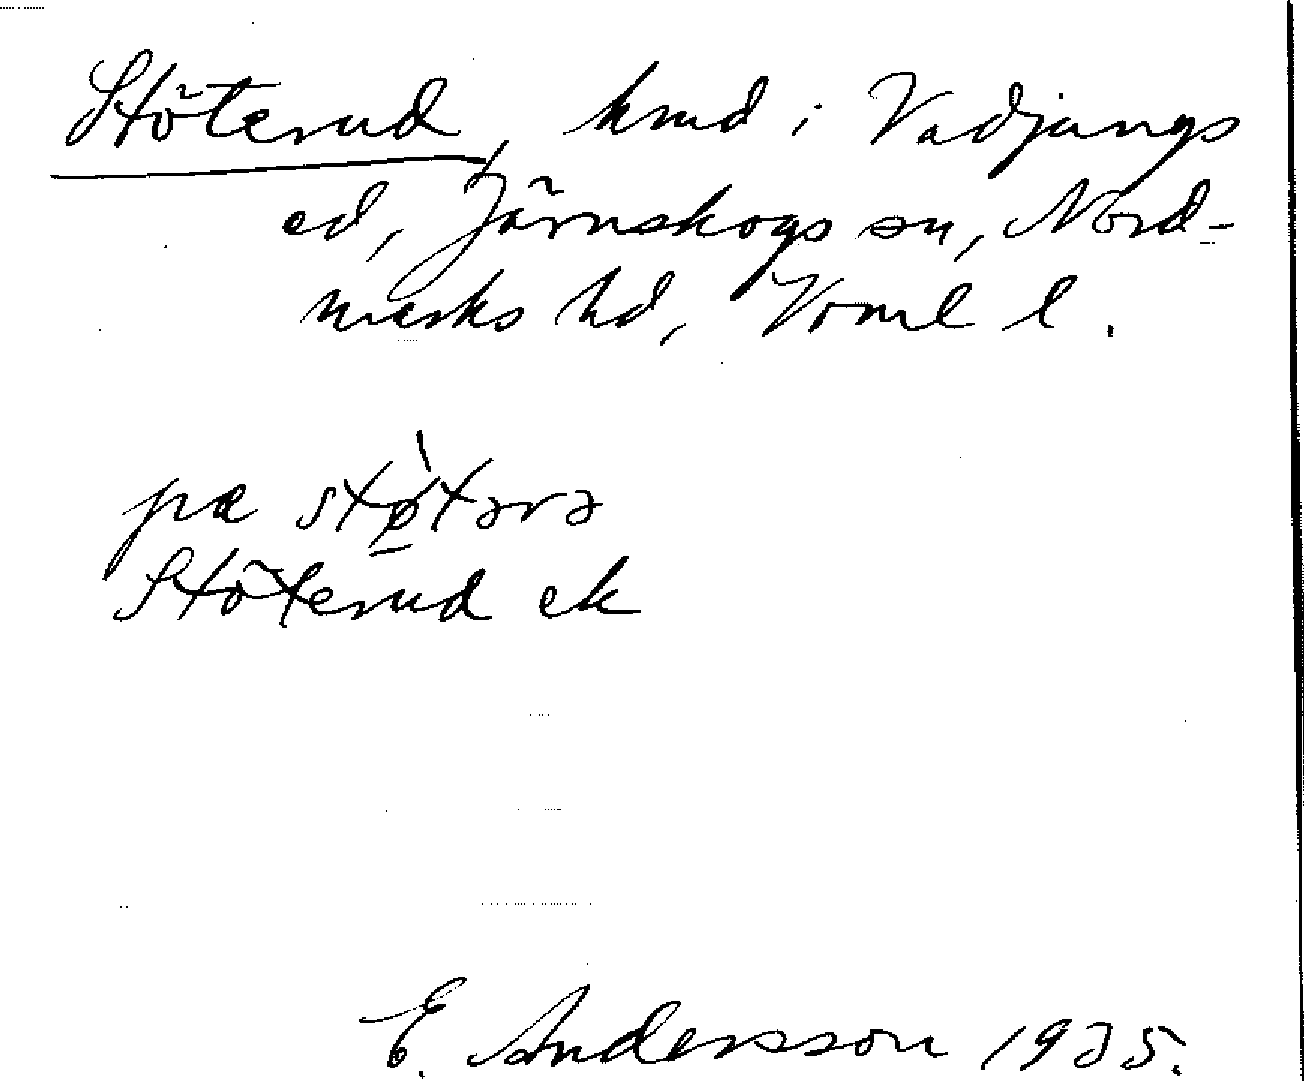 Stöterud, hmd i Vadjungs
ed, Järnskogs sn, Nord-
marks hd, Vrml l.
pæ støtərə
Stöterud ek
E. Andersson 1935.